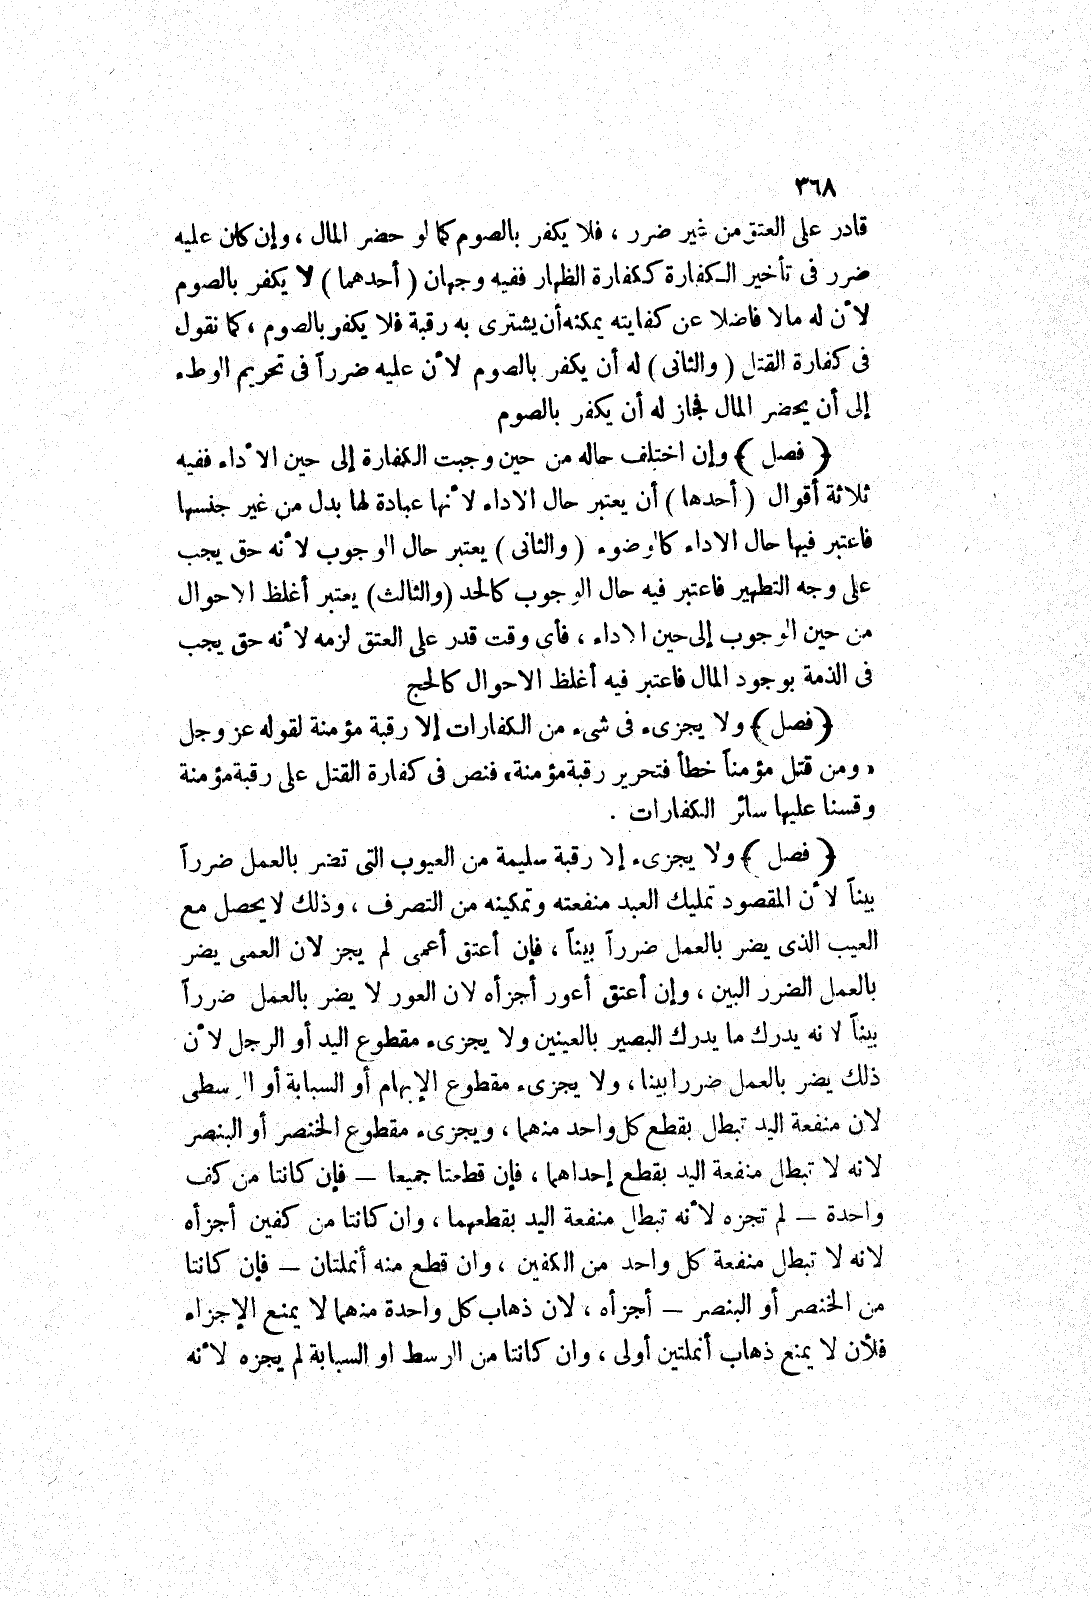 ٣٦٨
قادر على العتق من غير ضرر ، فلا يكفر بالصوم كما لو حضر المال ، وإن كان عليه
ضرر فى تأخير الكفارة ككفارة الظهار ففيه وجهان ( أحدهما ) لا يكفر بالصوم
لأن له مالا فاضلا عن كفايته يمكنه أن يشترى به رقبة فلا يكفر بالصوم ، كما نقول
فى كفارة القتل ( والثانى ) له أن يكفر بالصوم لأن عليه ضرراً فى تحريم الوطء
إلى أن يحضر المال فجاز له أن يكفر بالصوم
﴿ فصل ﴾ وإن اختلف حاله من حين وجبت الكفارة إلى حين الأداء ففيه
ثلاثة أقوال ( أحدها ) أن يعتبر حال الاداء لأنها عبادة لها بدل من غير جنسها
فاعتبر فيها حال الاداء كالوضوء ( والثانى ) يعتبر حال الوجوب لأنه حق يجب
على وجه التطهير فاعتبر فيه حال الوجوب كالحد (والثالث) يعتبر أغلظ الاحوال
من حين الوجوب إلى حين الاداء ، فأى وقت قدر على العتق لزمه لأنه حق يجب
فى الذمة بوجود المال فاعتبر فيه أغلظ الاحوال كالحج
﴿ فصل ﴾ ولا يجزىء فى شىء من الكفارات إلا رقبة مؤمنة لقوله عز وجل
« ومن قتل مؤمناً خطأ فتحرير رقبة مؤمنة » فنص فى كفارة القتل على رقبة مؤمنة
وقسنا عليها سائر الكفارات .
﴿ فصل ﴾ ولا يجزىء إلا رقبة سليمة من العيوب التى تضر بالعمل ضرراً
بيناً لأن المقصود تمليك العبد منفعته وتمكينه من التصرف ، وذلك لا يحصل مع
العيب الذى يضر بالعمل ضرراً بيناً ، فإن أعتق أعمى لم يجز لان العمى يضر
بالعمل الضرر البين ، وإن أعتق أعور أجزأه لان العور لا يضر بالعمل ضرراً
بيناً لانه يدرك ما يدرك البصير بالعينين ولا يجزىء مقطوع اليد أو الرجل لأن
ذلك يضر بالعمل ضررا بينا ، ولا يجزىء مقطوع الإبهام أو السبابة أو الوسطى
لان منفعة اليد تبطل بقطع كل واحد منهما ، ويجزىء مقطوع الخنصر أو البنصر
لانه لا تبطل منفعة اليد بقطع إحداهما ، فإن قطعتا جميعا — فإن كانتا من كف
واحدة — لم تجزه لأنه تبطل منفعة اليد بقطعهما ، وان كانتا من كفين أجزأه
لانه لا تبطل منفعة كل واحد من الكفين ، وان قطع منه أنملتان — فإن كانتا
من الخنصر أو البنصر — أجزأه ، لان ذهاب كل واحدة منهما لا يمنع الإجزاء
فلأن لا يمنع ذهاب أنملتين أولى ، وان كانتا من الوسط او السبابة لم يجزه لأنه